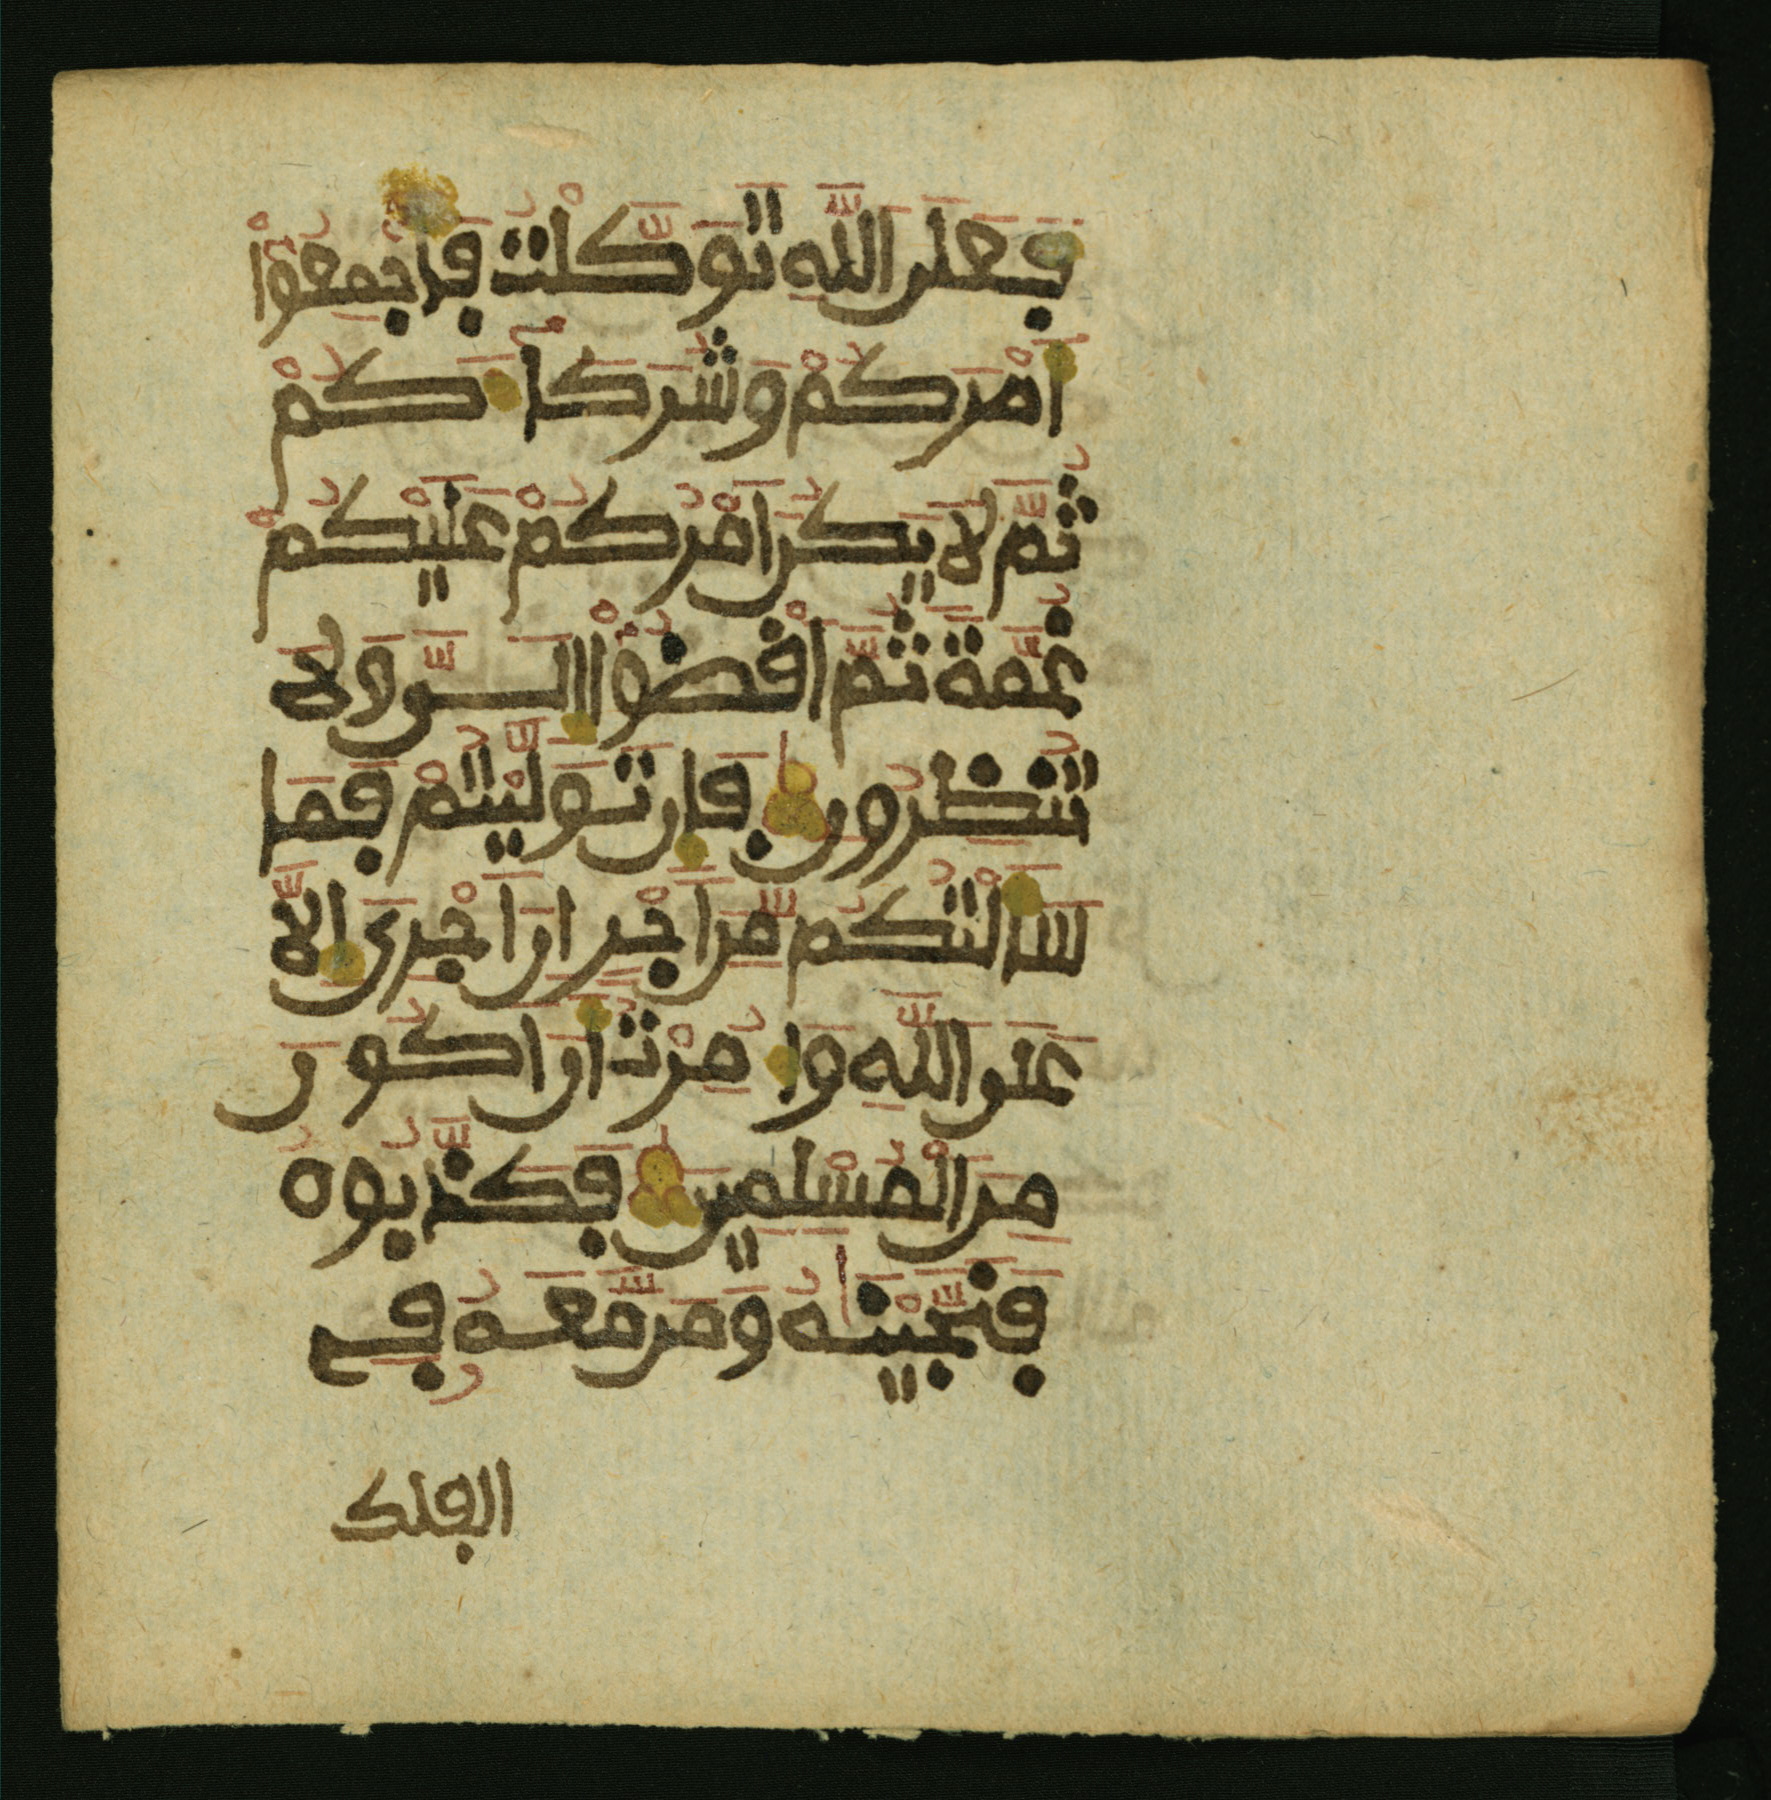 فَعَلَى اللَّهِ تَوَكَّلْتُ فَأَجْمِعُوٓاْ
أَمْرَكُمْ وَشُرَكَآءَكُمْ
ثُمَّ لَا يَكُنَ اَمْرُكُمْ عَلَيْكُمْ
غُمَّةً ثُمَّ اَقْضُوٓاْ إِلَىَّ وَلَا
تُنظِرُونِ فَإِن تَوَلَّيْتُمْ فَمَا
سَأَلْتُكُم مِّنَ اَجْرٍ اِنَ اَجْرِىَ إِلَّا
عَلَى اللَّهِ وَأُمِرْتُ أَنَ اَكُونَ
مِنَ الْمُسْلِمِينَ فَكَذَّبُوهُ
فَنَجَّيْنَٰهُ وَمَن مَّعَهُۥ فِى
الفلك